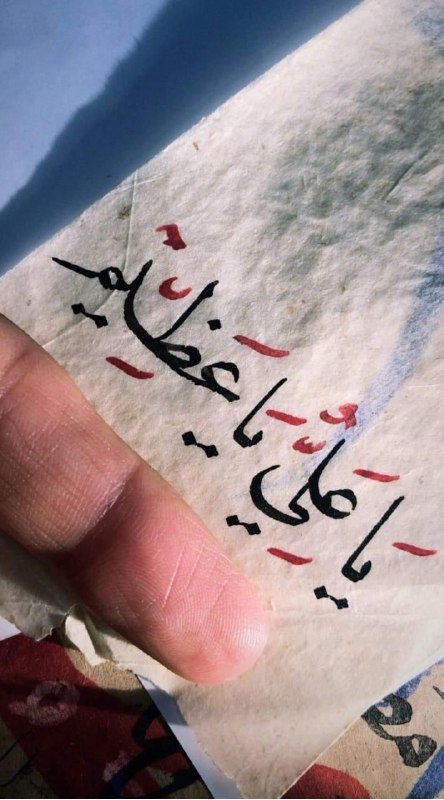 يَا عَلِيُّ يَا عَظِيْمُ